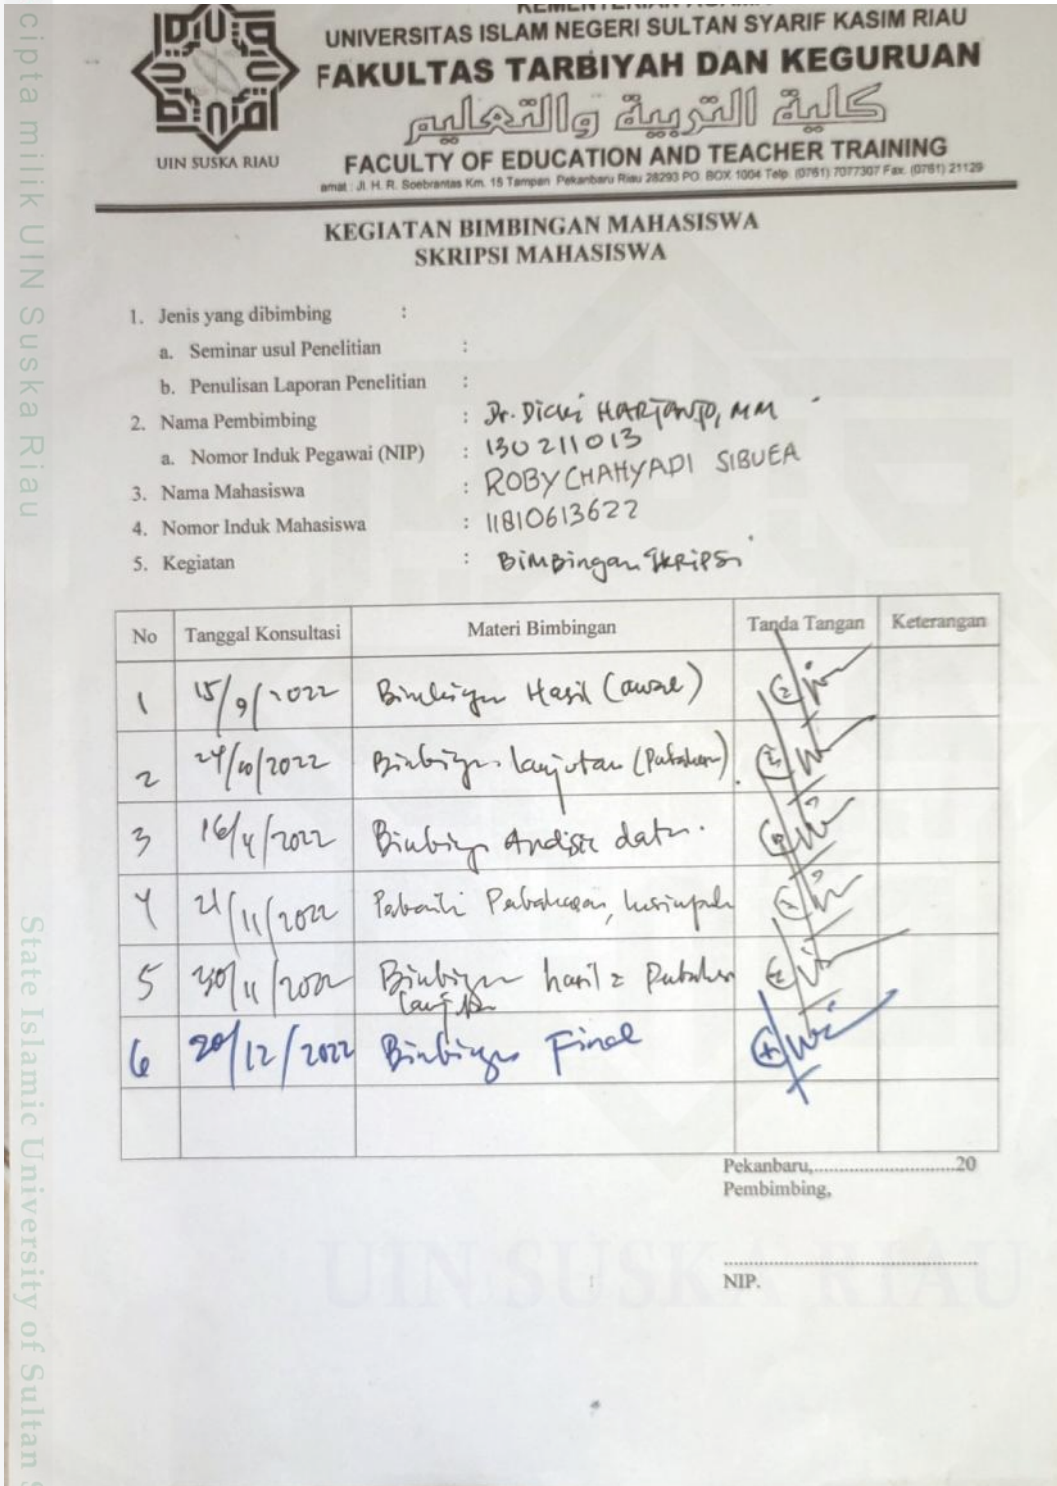 cipta milik UIN Suska Riau
State Islamic University of Sultan
UIN SUSKA RIAU
UNIVERSITAS ISLAM NEGERI SULTAN SYARIF KASIM RIAU
FAKULTAS TARBIYAH DAN KEGURUAN
كلية التربية والتعليم
FACULTY OF EDUCATION AND TEACHER TRAINING
amat : Jl. H. R. Soebrantas Km. 15 Tampan Pekanbaru Riau 28293 PO. BOX 1004 Telp. (0761) 7077307 Fax. (0761) 21129
KEGIATAN BIMBINGAN MAHASISWA
SKRIPSI MAHASISWA
1. Jenis yang dibimbing :
a. Seminar usul Penelitian :
b. Penulisan Laporan Penelitian :
2. Nama Pembimbing : Dr. Dicki HARTANTO, MM
a. Nomor Induk Pegawai (NIP) : 130211013
3. Nama Mahasiswa : ROBY CHAHYADI SIBUEA
4. Nomor Induk Mahasiswa : 11810613622
5. Kegiatan : BiMBingan SKRiPSi
No Tanggal Konsultasi Materi Bimbingan Tanda Tangan Keterangan
1 15/9/2022 Bimbingan Hasil (awal)
2 24/10/2022 Bimbingan lanjutan
3 2022 Bimbingan Analisis data.
4 21/11/2022
5 30/11/2022 Bimbingan hasil
6 20/12/2022 Bimbingan Final
Pekanbaru,............................20
Pembimbing,
NIP.
UIN SUSKA RIAU